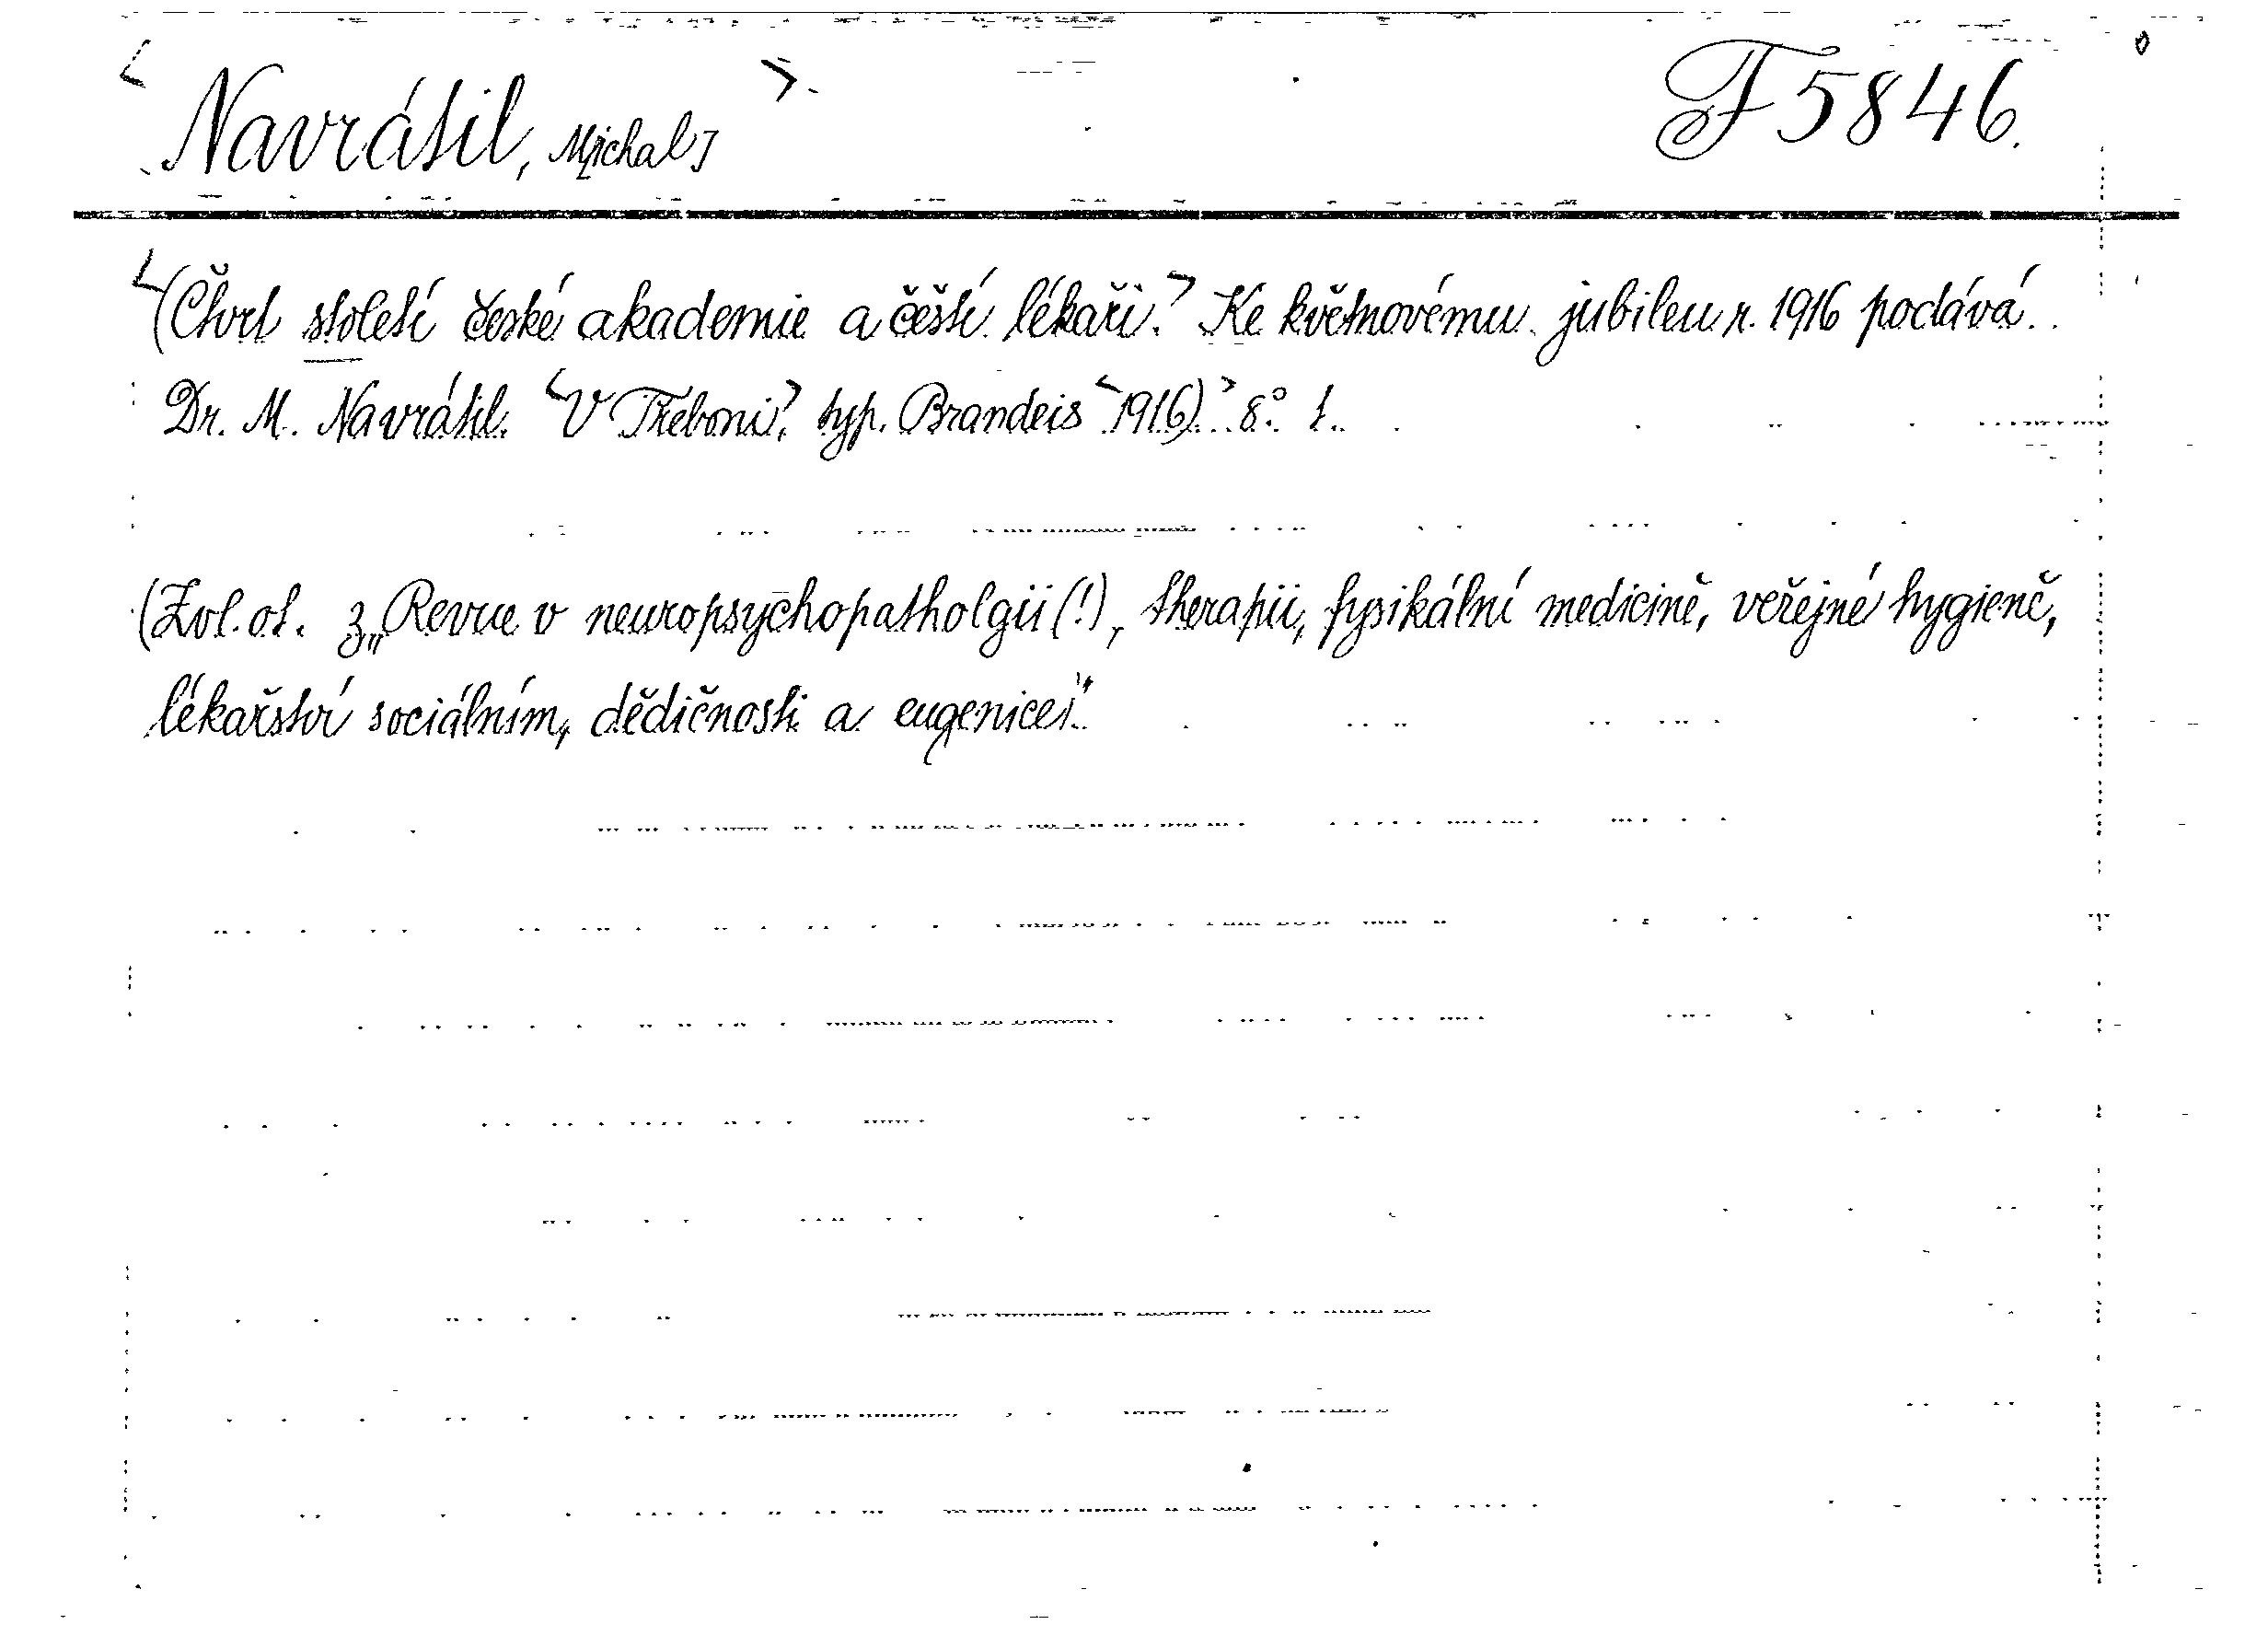 <Navrátil, M[ichal]>. F 5846.
<(Čtvrt století české akademie a čeští lékaři.> Ke květnovému jubileu r. 1916 podává
Dr. M. Navrátil. <V Třeboni>, typ. Brandeis <1916).> 8° 1.
(Zvl. ot. z „Revue v neuropsychopatholgii (!), therapii, fysikální medicině, veřejné hygieně,
lékařství sociálním, dědičnosti a eugenice".